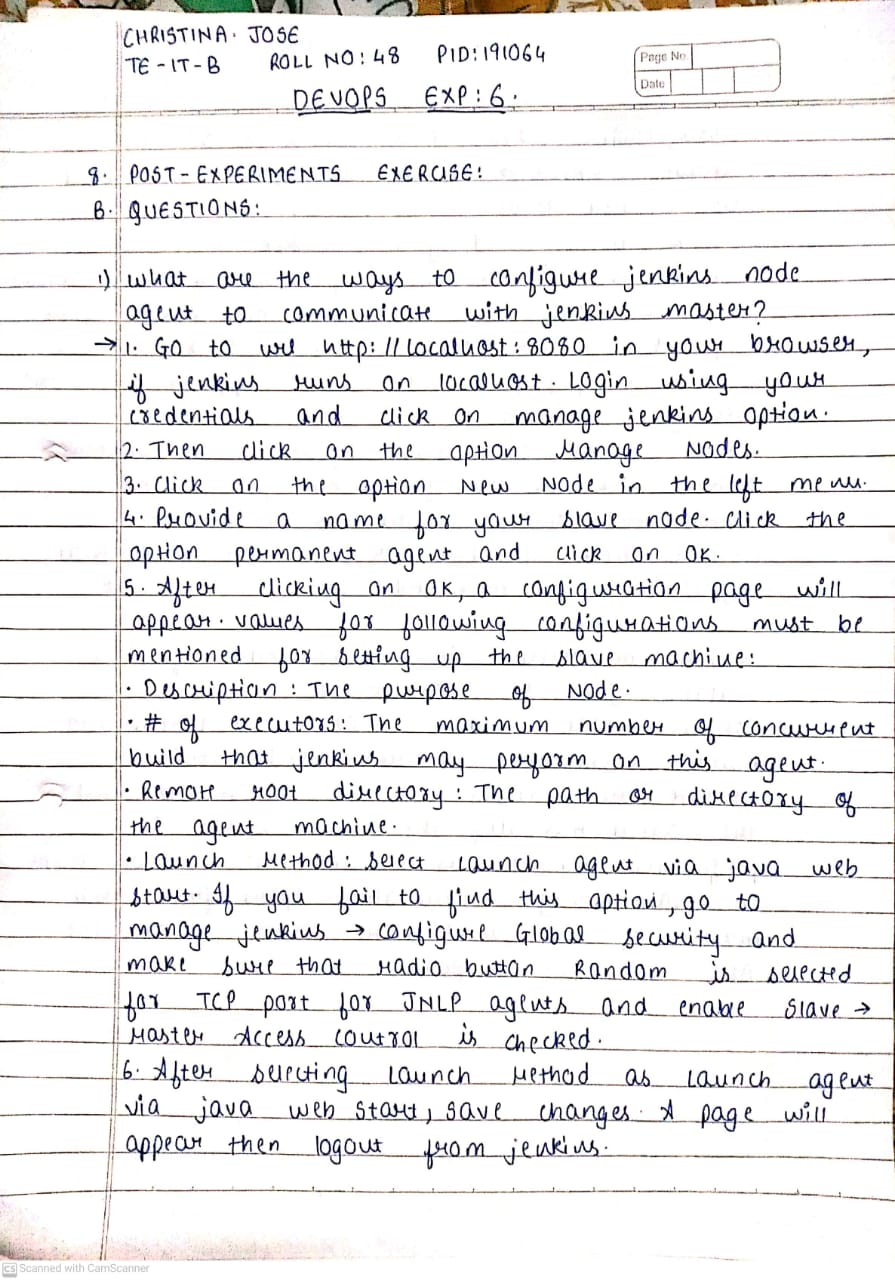 CHRISTINA. JOSE
TE-IT-B ROLL NO: 48 PID: 191064
Page No
Date
DEVOPS EXP: 6.
8. POST-EXPERIMENTS EXERCISE:
B. QUESTIONS:
1) what are the ways to configure jenkins node
agent to communicate with jenkins master?
→ 1. Go to url http://localhost:8080 in your browser,
if jenkins runs on localhost. Login using your
credentials and click on manage jenkins option.
2. Then click on the option Manage Nodes.
3. Click on the option New Node in the left menu.
4. Provide a name for your slave node. Click the
option permanent agent and click on OK.
5. After clicking on OK, a configuration page will
appear. values for following configurations must be
mentioned for setting up the slave machine:
• Description: The purpose of Node.
• # of executors: The maximum number of concurrent
build that jenkins may perform on this agent.
• Remote root directory: The path or directory of
the agent machine.
• Launch Method: Select launch agent via java web
start. If you fail to find this option, go to
manage jenkins → configure Global security and
make sure that radio button Random is selected
for TCP port for JNLP agents and enable Slave →
Master Access control is checked.
6. After selecting Launch Method as Launch agent
via java web start, save changes. A page will
appear then logout from jenkins.
CS Scanned with CamScanner